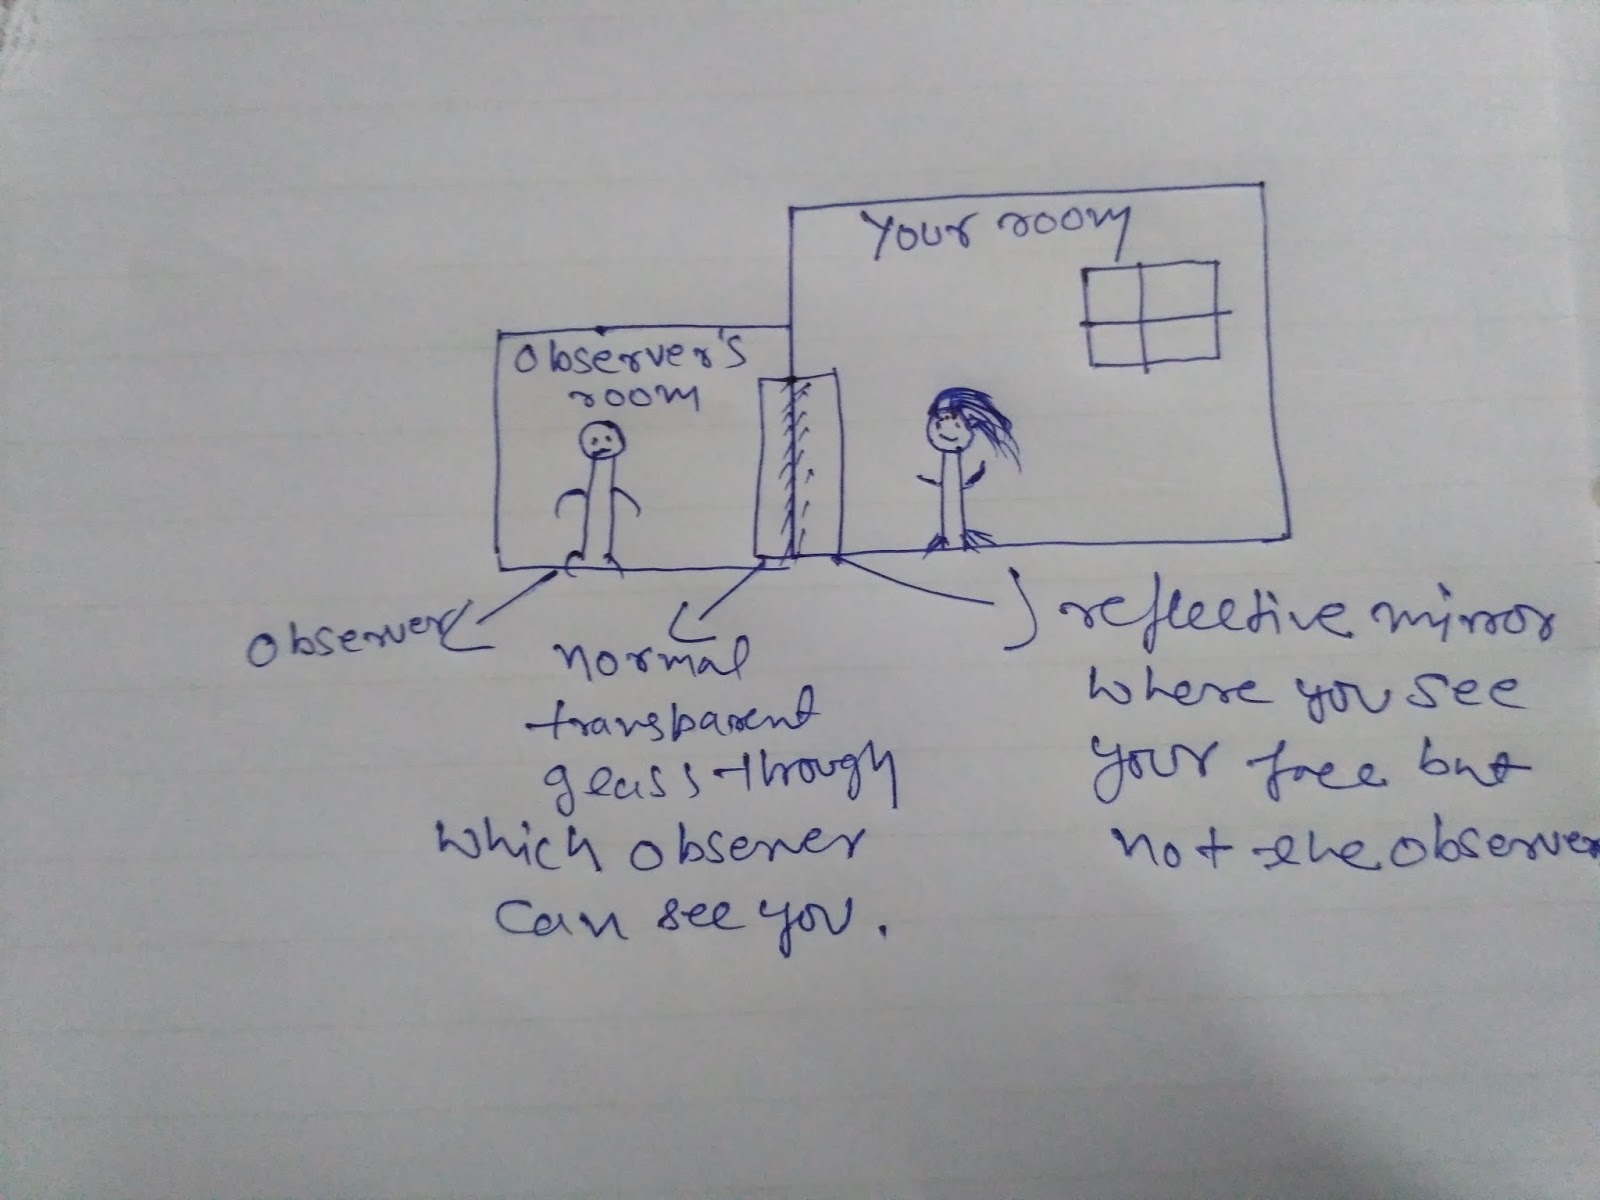 Your room
Observer's
room
Observer
normal
transparent
glass through
which observer
can see you.
reflective mirror
where you see
your face but
not the observer